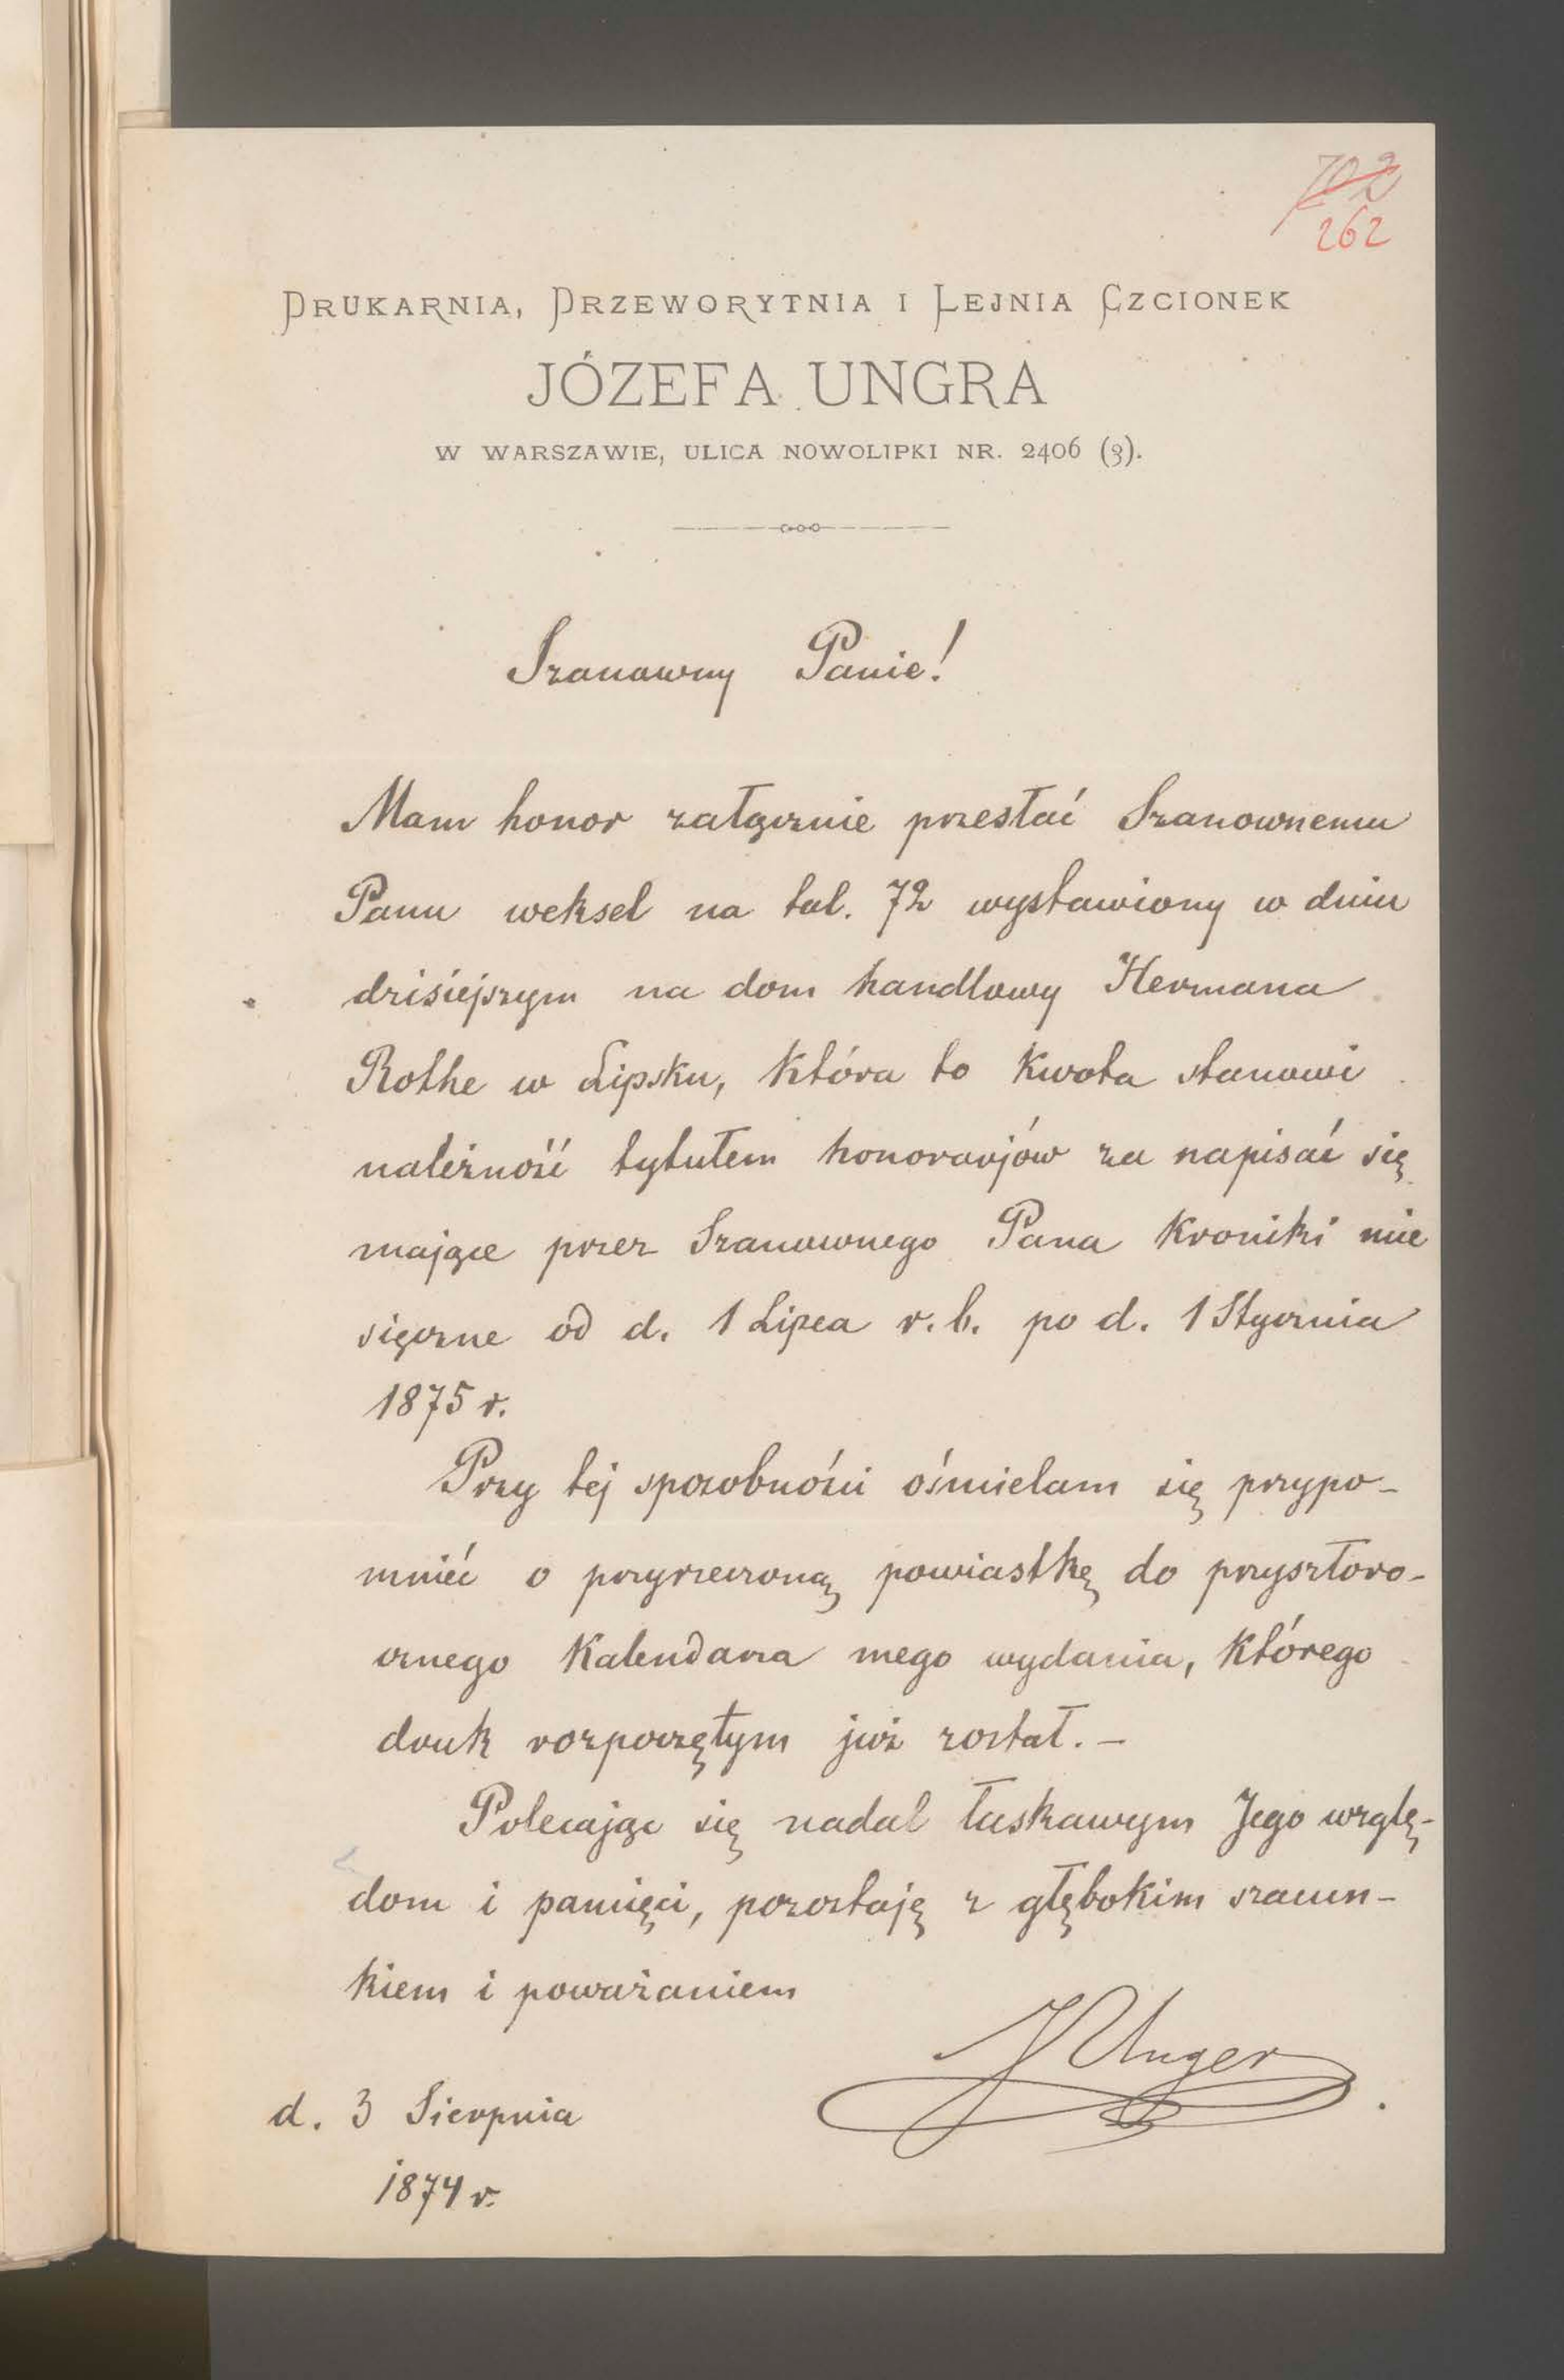 702
262
DRUKARNIA, DRZEWORYTNIA I LEJNIA CZCIONEK
JÓZEFA UNGRA
W WARSZAWIE, ULICA NOWOLIPKI NR. 2406 (3).
Szanowny Panie!
Mam honor załącznie przesłać Szanownemu
Panu weksel na tal. 72 wystawiony w dniu
dzisiejszym na dom handlowy Hermana
Rothe w Lipsku, która to kwota stanowi
należność tytułem honorarjów za napisać się
mające przez Szanownego Pana Kroniki mie
sięczne od d. 1 Lipca r. b. po d. 1 Stycznia
1875 r.
Przy tej sposobności ośmielam się przypo-
mnieć o przyrzeczoną powiastkę do przyszłoro-
cznego Kalendarza mego wydania, którego
druk rozpoczętym już został. –
Polecając się nadal łaskawym Jego wzglę-
dom i pamięci, pozostaję z głębokim szacun-
kiem i poważaniem
J Unger
d. 3 Sierpnia
1874 r.